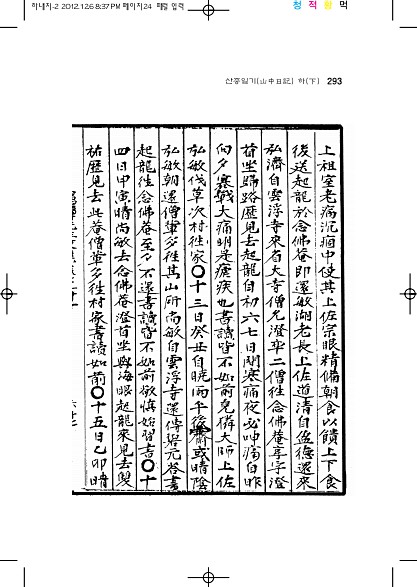 하내지-2 2012.12.6 8:37 PM 페이지24 페럴 입력
청 적 황 먹
산중일기(山中日記) 하(下) 293
上祖室老病沉痼中使其上佐宗眼精備朝食以饋上下食
後送起龍於念佛菴即還敏湖老長上佐道清自盈德還來
弘濟自雲浮寺來省大寺僧允澄率二僧徃念佛菴享字澄
首坐歸路歷見去起龍自初六七日間寒痛夜必呻痛自昨
向夕寒戰大痛明是瘧疾也書讀皆不如前見憐大師上佐
弘敏伐草次村徃家〇十三日癸丑自曉雨午後霽或晴陰
弘敏朝還僧輩多徃其山所尚敏自雲浮寺還傳畢元答書
起龍徃念佛菴至夕不還書讀皆不如前歎慎始習吉〇十
四日甲寅晴尚敏去念佛菴澄首坐與海眼起龍來見去雙
祐歷見去此菴僧輩多徃村家書讀如前〇十五日乙卯晴